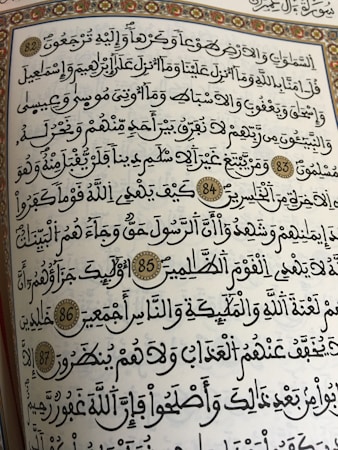 سورة آل عمران
السَّمَٰوَٰتِ وَالَارْضِ طَوْعاً وَكَرْهاً وَإِلَيْهِ تُرْجَعُونَ 82
قُلَ اٰمَنَّا بِاللَّهِ وَمَآ أُنزِلَ عَلَيْنَا وَمَآ أُنزِلَ عَلَىٰٓ إِبْرَٰهِيمَ وَإِسْمَٰعِيلَ
وَإِسْحَٰقَ وَيَعْقُوبَ وَالَاسْبَاطِ وَمَآ أُوتِيَ مُوسَىٰ وَعِيسَىٰ
وَالنَّبِيٓـُٔونَ مِن رَّبِّهِمْ لَا نُفَرِّقُ بَيْنَ أَحَدٍ مِّنْهُمْ وَنَحْنُ لَهُۥ
مُسْلِمُونَ 83 وَمَنْ يَّبْتَغِ غَيْرَ الِاسْلَٰمِ دِيناً فَلَنْ يُّقْبَلَ مِنْهُ وَهُوَ
الَاخِرَةِ مِنَ الْخَٰسِرِينَ 84 كَيْفَ يَهْدِي اللَّهُ قَوْماً كَفَرُواْ
إِيمَٰنِهِمْ وَشَهِدُوٓاْ أَنَّ الرَّسُولَ حَقٌّ وَجَآءَهُمُ الْبَيِّنَٰتُ
لَا يَهْدِي الْقَوْمَ الظَّٰلِمِينَ 85 أُوْلَٰٓئِكَ جَزَآؤُهُمُۥٓ أَنَّ
لَعْنَةَ اللَّهِ وَالْمَلَٰٓئِكَةِ وَالنَّاسِ أَجْمَعِينَ 86 خَٰلِدِينَ
لَا يُخَفَّفُ عَنْهُمُ الْعَذَابُ وَلَا هُمْ يُنظَرُونَ 87 إِلَّا
مِنۢ بَعْدِ ذَٰلِكَ وَأَصْلَحُواْ فَإِنَّ اللَّهَ غَفُورٌ رَّحِيمٌ